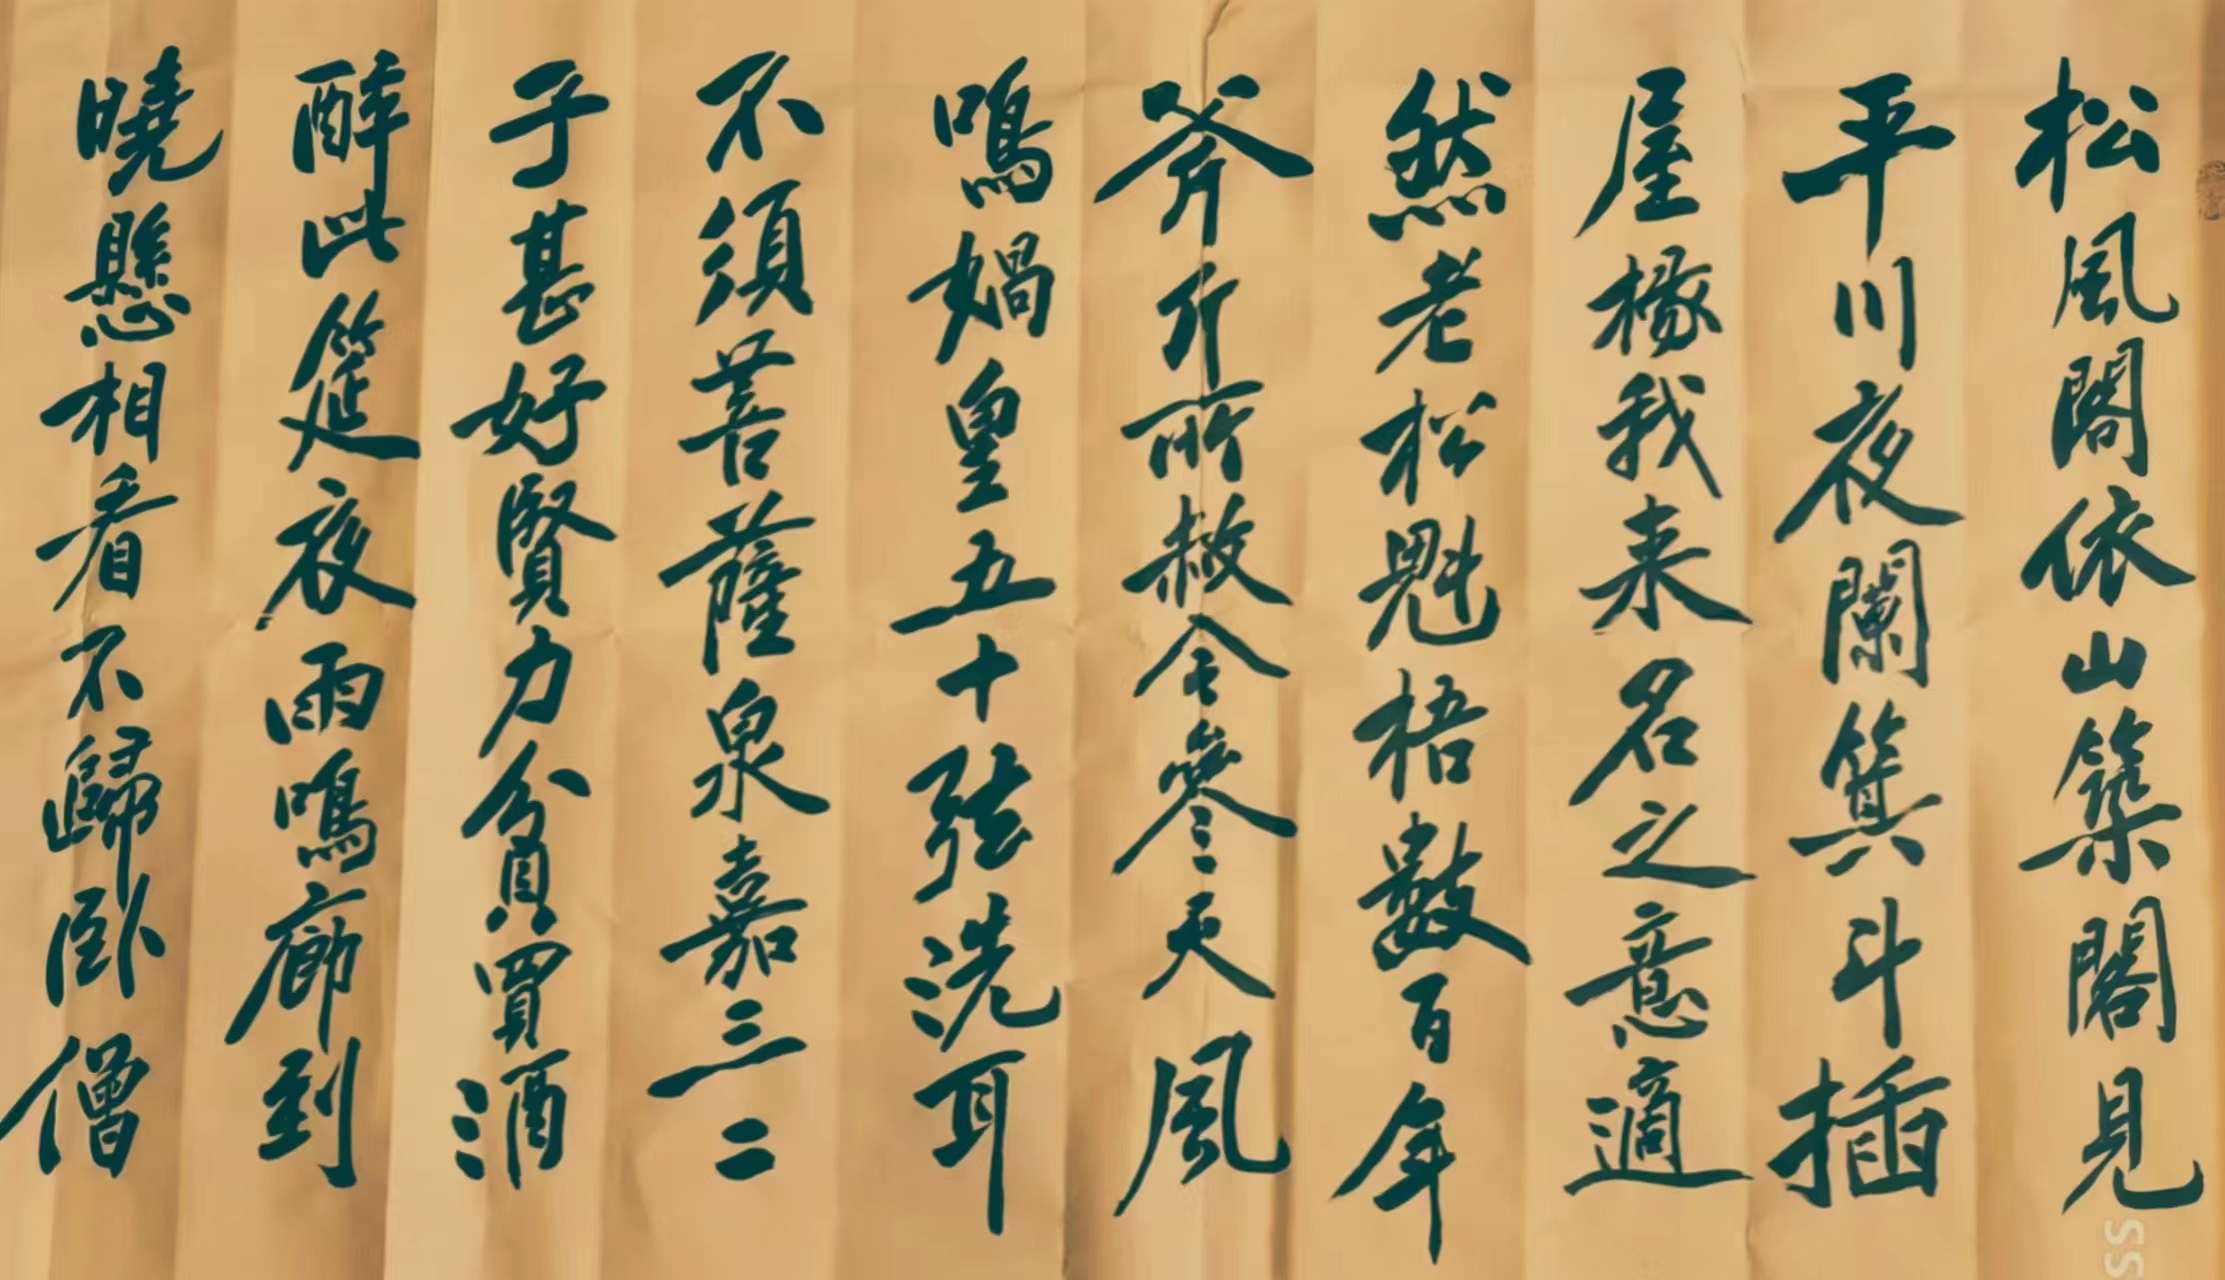 松風閣依山築閣見
平川夜闌箕斗插
屋椽我来名之意適
然老松魁梧數百年
斧斤所赦令參天風
鳴媧皇五十弦洗耳
不須菩薩泉嘉三二
子甚好賢力貧買酒
醉此筵夜雨鳴廊到
曉懸相看不歸臥僧
SS